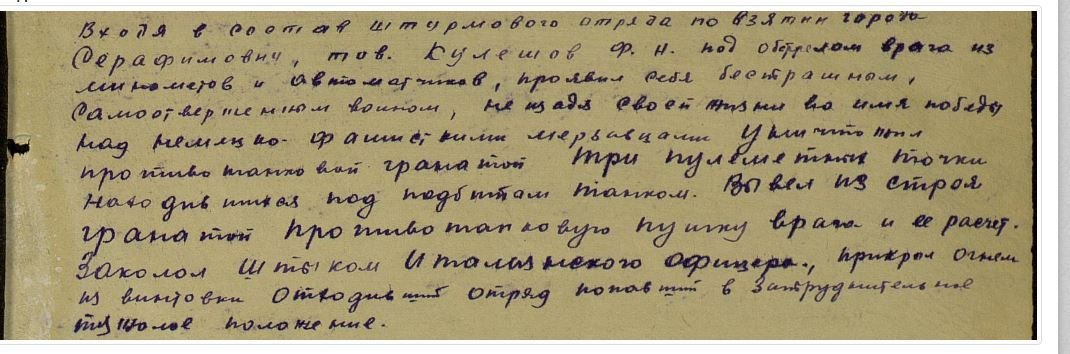 Входя в состав штурмового отряда по взятии города
Серафимович, тов. Кулешов Ф. Н. под обстрелом врага из
минометов и автоматчиков, проявил себя бесстрашным,
самоотверженным воином, не щадя своей жизни во имя победы
над немецко-фашистскими мерзавцами уничтожил
противотанковой гранатой три пулеметных точки
находившихся под подбитам танком. Вывел из строя
гранатой противотанковую пушку врага и ее расчет.
Заколол штыком Итальянского офицера, прикрыл огнем
из винтовки отходивший отряд попавший в затруднительное
тяжолое положение.